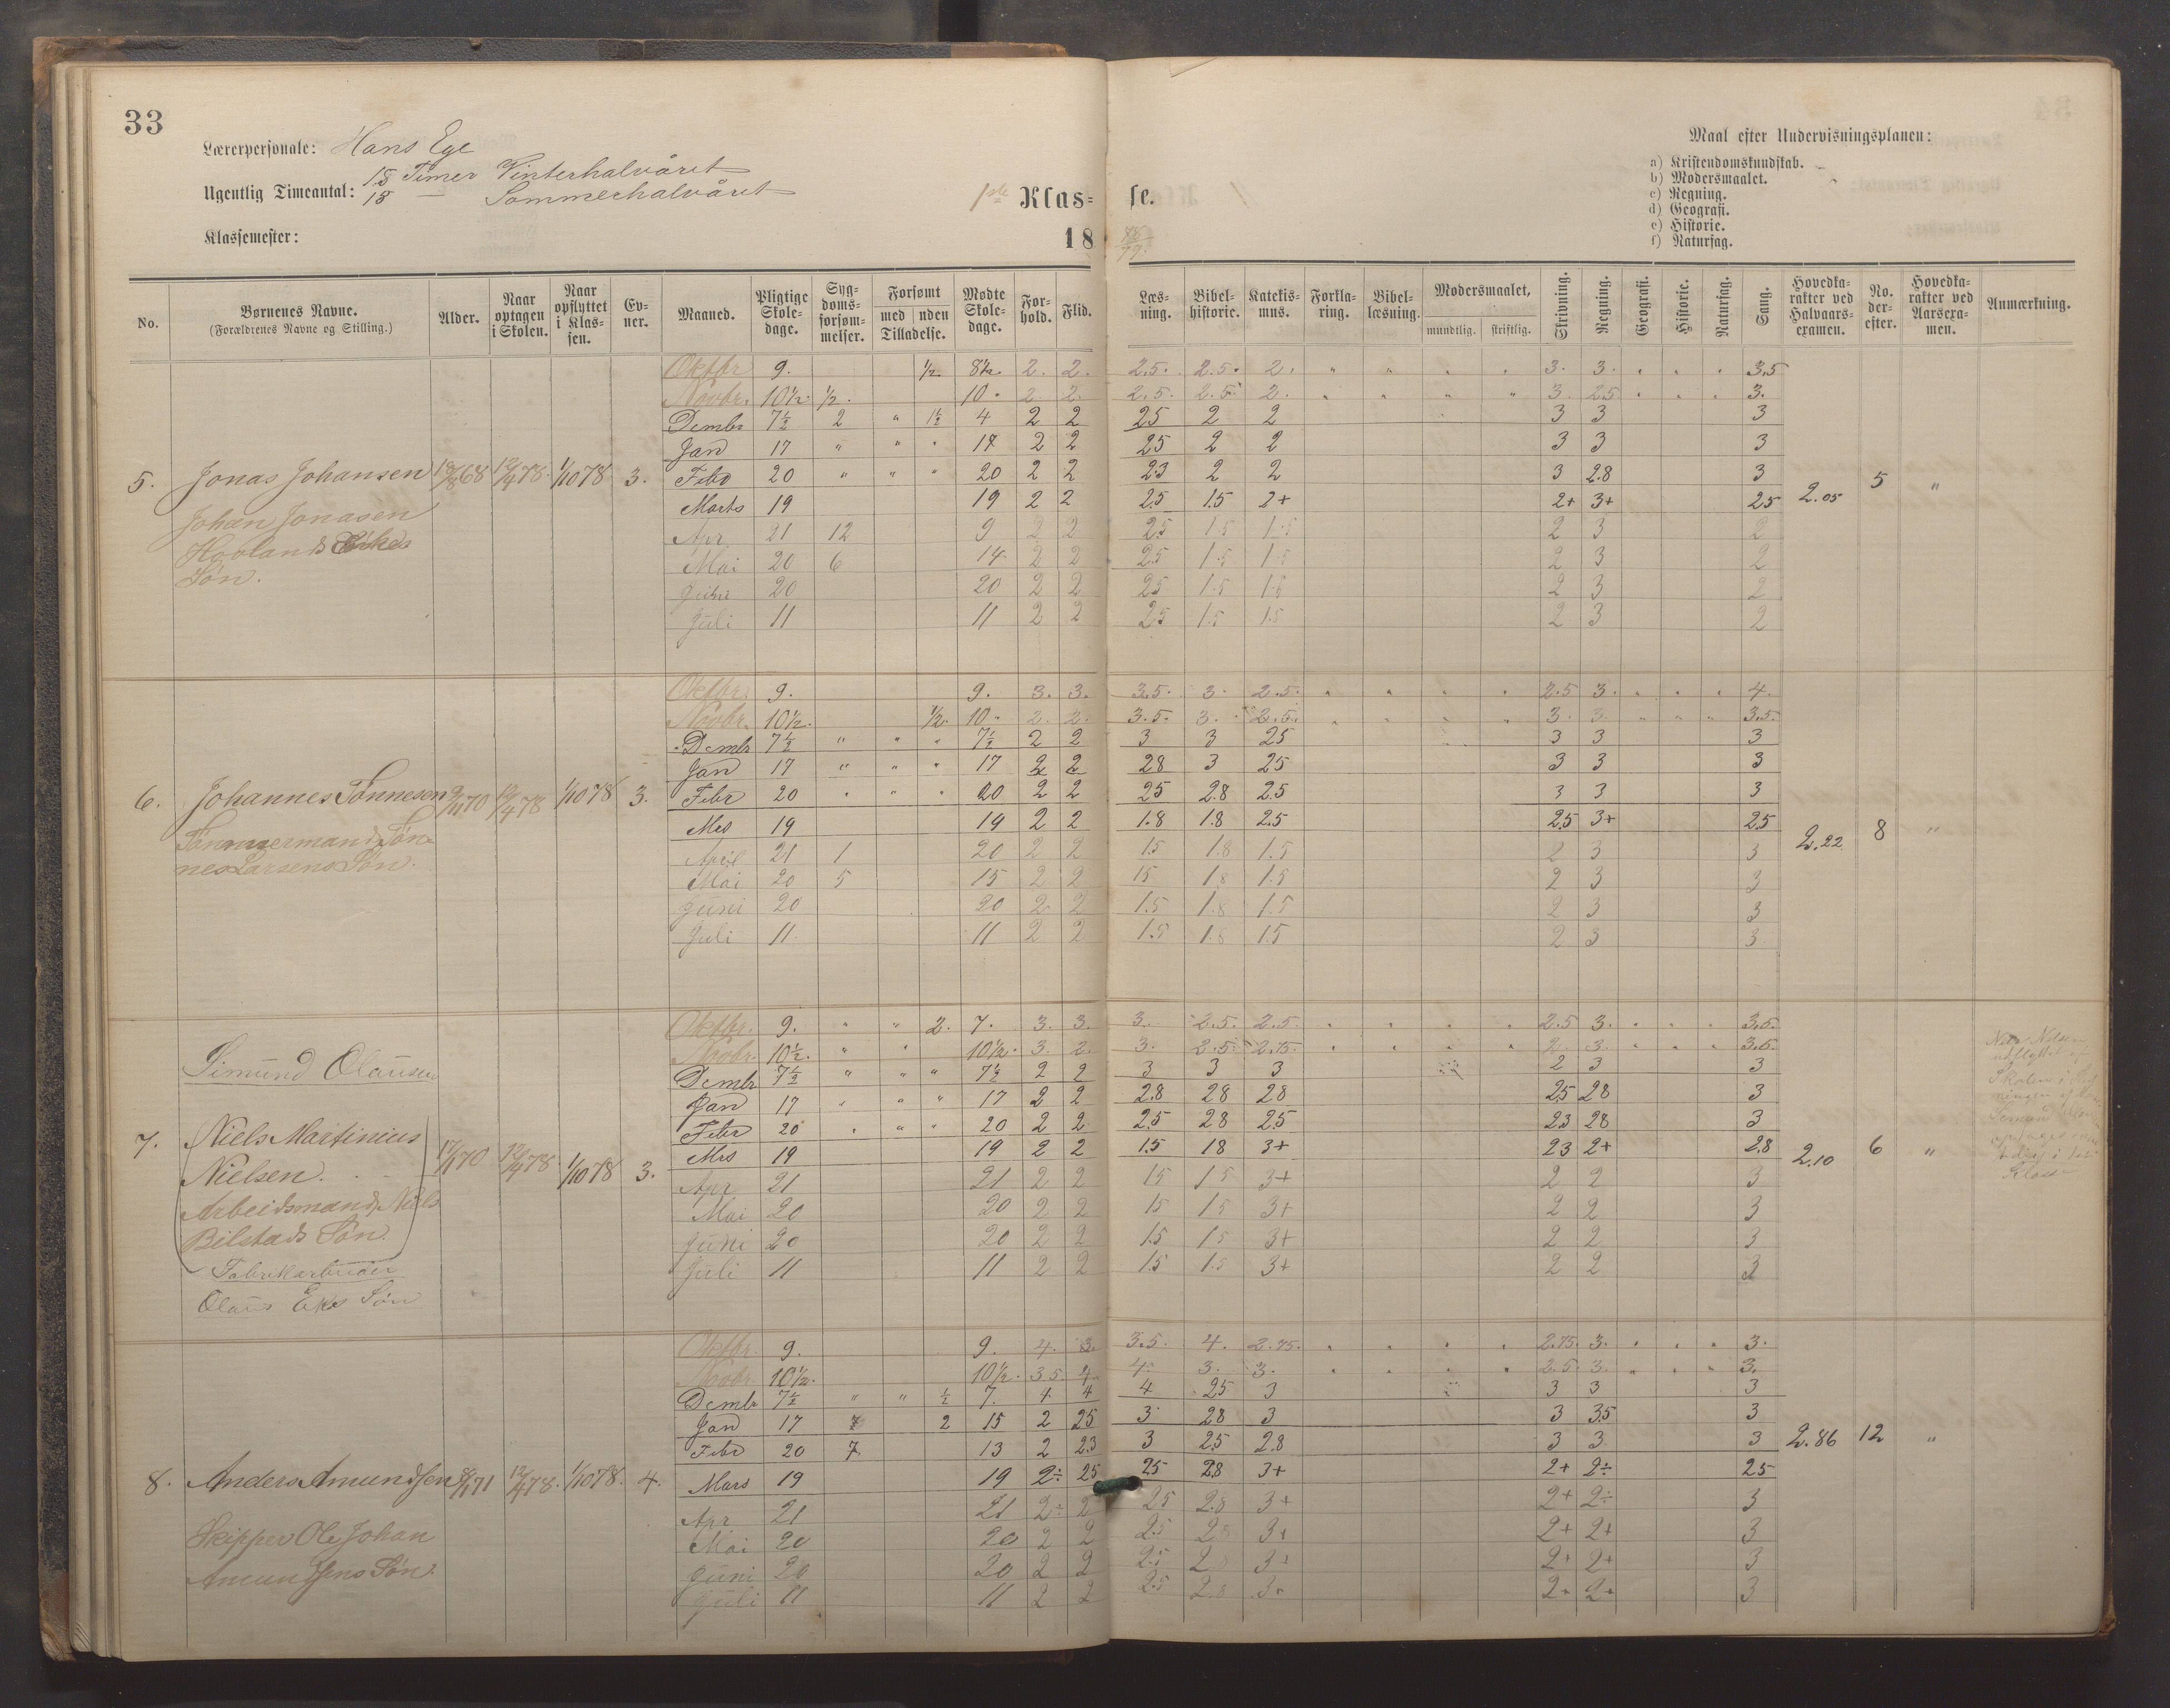 33
Lærerpersonale: Hans Ege
Ugentlig Timeantal: 18 Timer Vinterhalvåret
18 — Sommerhalvåret
Klassemester:
1ste Klas- se.
18 78/79
Maal efter Undervisningsplanen:
a) Kristendomskundskab.
b) Modersmaalet.
c) Regning.
d) Geografi.
e) Historie.
f) Naturfag.
No. | Børnenes Navne. (Forældrenes Navne og Stilling.) | Alder. | Naar optagen i Skolen. | Naar opflyttet i Klassen. | Evner. | Maaned. | Pligtige Skoledage. | Sygdomsforsømmelser. | Forsømt med | uden Tilladelse. | Mødte Skoledage. | Forhold. | Flid. | Læsning. | Bibelhistorie. | Katekismus. | Forklaring. | Bibellæsning. | Modersmaalet, mundtlig. | skriftlig. | Skrivning. | Regning. | Geografi. | Historie. | Naturfag. | Sang. | Hovedkarakter ved Halvaarsexamen. | No. derefter. | Hovedkarakter ved Aarsexamen. | Anmærkning.
5. Jonas Johansen 18/8 68 12/4 78. 1/10 78 3. 2.05 5 "
Johan Jonasen
Hovlands
Søn.
Oktbr. 9. 1/2 8 1/2. 2. 2. 2.5. 2.5. 2. " " " " 3. 3. " " " 3.5
Novbr. 10 1/2. 1/2. 10. 2. 2. 2.5. 2.5. 2. " " " " 3. 2.5 " " " 3.
Dembr 7 1/2 2 " 1 1/2 4 2 2 25 2 2 3 3 3
Jan 17 " " " 17 2 2 25 2 2 3 3 3
Febr 20 " " " 20 2 2 23 2 2 3 2.8 3
Marts 19 19 2 2 25 15 2+ 2+ 3+ 25
Apr 21 12 9 2 2 25 1.5 1.5 2 3 2
Mai 20 6 14 2 2 25 1.5 1.5 2 3 2
Juni 20 20 2 2 25 1.5 1.5 2 3 2
Juli 11 11 2 2 25 1.5 1.5 2 3 2
6. Johannes Tønnesen 9/11 70 12/4 78 1/10 78 3. 2.22 8 "
Tømmermand Tøn-
nes Larsens Søn.
Oktbr. 9. 9. 3. 3. 3.5. 3. 2.5. " " " " 2.5 3. " " " 4.
Novbr. 10 1/2. 1/2. 10 " 2. 2. 3.5. 3. 2.5. " " " " 3. 3. " " " 3.5.
Dembr 7 1/2 " " " 7 1/2 2 2 3 3 25 3 3 3
Jan 17 " " " 17 2 2 28 3 25 3 3 3
Febr 20 " " " 20 2 2 25 2.8 2.5 3 3 3
Mrs 19 19 2 2 1.8 1.8 2.5 2.5 3+ 25
April 21 1 20 2 2 15 1.8 1.5 2 3 3
Mai 20 5 15 2 2 15 1.8 1.5 2 3 3
Juni 20 20 2 2 1.5 1.8 1.5 2 3 3
Juli 11 11 2 2 1.5 1.8 1.5 2 3 3
7. Simund Olausen
Niels Martinius
Nielsen. 17/1 70 12/4 78 1/10 78 3. 2.10 6 "
Arbeidsmand Niels
Bilstads Søn.
Fabrikarbeider
Olaus Ekes Søn
Oktbr. 9. " " 2. 7. 3. 3. 3. 2.5. 2.5. " " " " 2.5 3. " " " 3.5.
Novbr. 10 1/2. " " 10 1/2. 3. 2. 3. 2.5. 2.75. " " " " 2. 3. " " " 3.5.
Dembr 7 1/2 " " " 7 1/2 2 2 3 3 3 2 3 3
Jan 17 " " " 17 2 2 2.8 28 28 25 28 3
Febr 20 " " " 20 2 2 2.5 28 25 23 28 3
Mrs 19 19 2 2 15 18 3+ 23 2+ 2.8
Apr 21 21 2 2 15 15 3+ 2 2 3
Mai 20 20 2 2 15 15 3+ 2 2 3
Juni 20 20 2 2 1.5 15 3+ 2 2 3
Juli 11 11 2 2 1.5 1.5 3+ 2 2 3
Niels Nilsen
udflyttet af
Skolen i
Simund
optages
i 1ste
Klasse
8. Anders Amundsen 8/1 71 12/4 78. 1/10 78. 4. 2.86 12 "
Skipper Ole Johan
Amundsens Søn.
Oktbr. 9. 9. 4. 3. 3.5. 4. 2.75. " " " " 2.75. 3. " " " 3.
Novbr. 10 1/2. 10 1/2. 3.5. 4. 4. 3. 3. " " " " 2.5 3. " " " 3.
Dembr 7 1/2 " " 1/2 7. 4 4 4 25 3 3 3 3
Jan 17 2 15 2 25 3 28 3 3 3.5 3
Febr 20 7 13 2 2.3 3 2.5 2.8 3 3 3
Mars 19 19 2÷ 25 25 28 3+ 2+ 2÷ 25
Apr 21 21 2÷ 2 25 2.8 3+ 2+ 2÷ 3
Mai 20 20 2 2 2.5 2.8 3+ 2+ 2+ 3
Juni 20 20 2 2 2.5 2.8 3+ 2+ 2+ 3
Juli 11 11 2 2 2.5 2.8 3+ 2+ 2+ 3